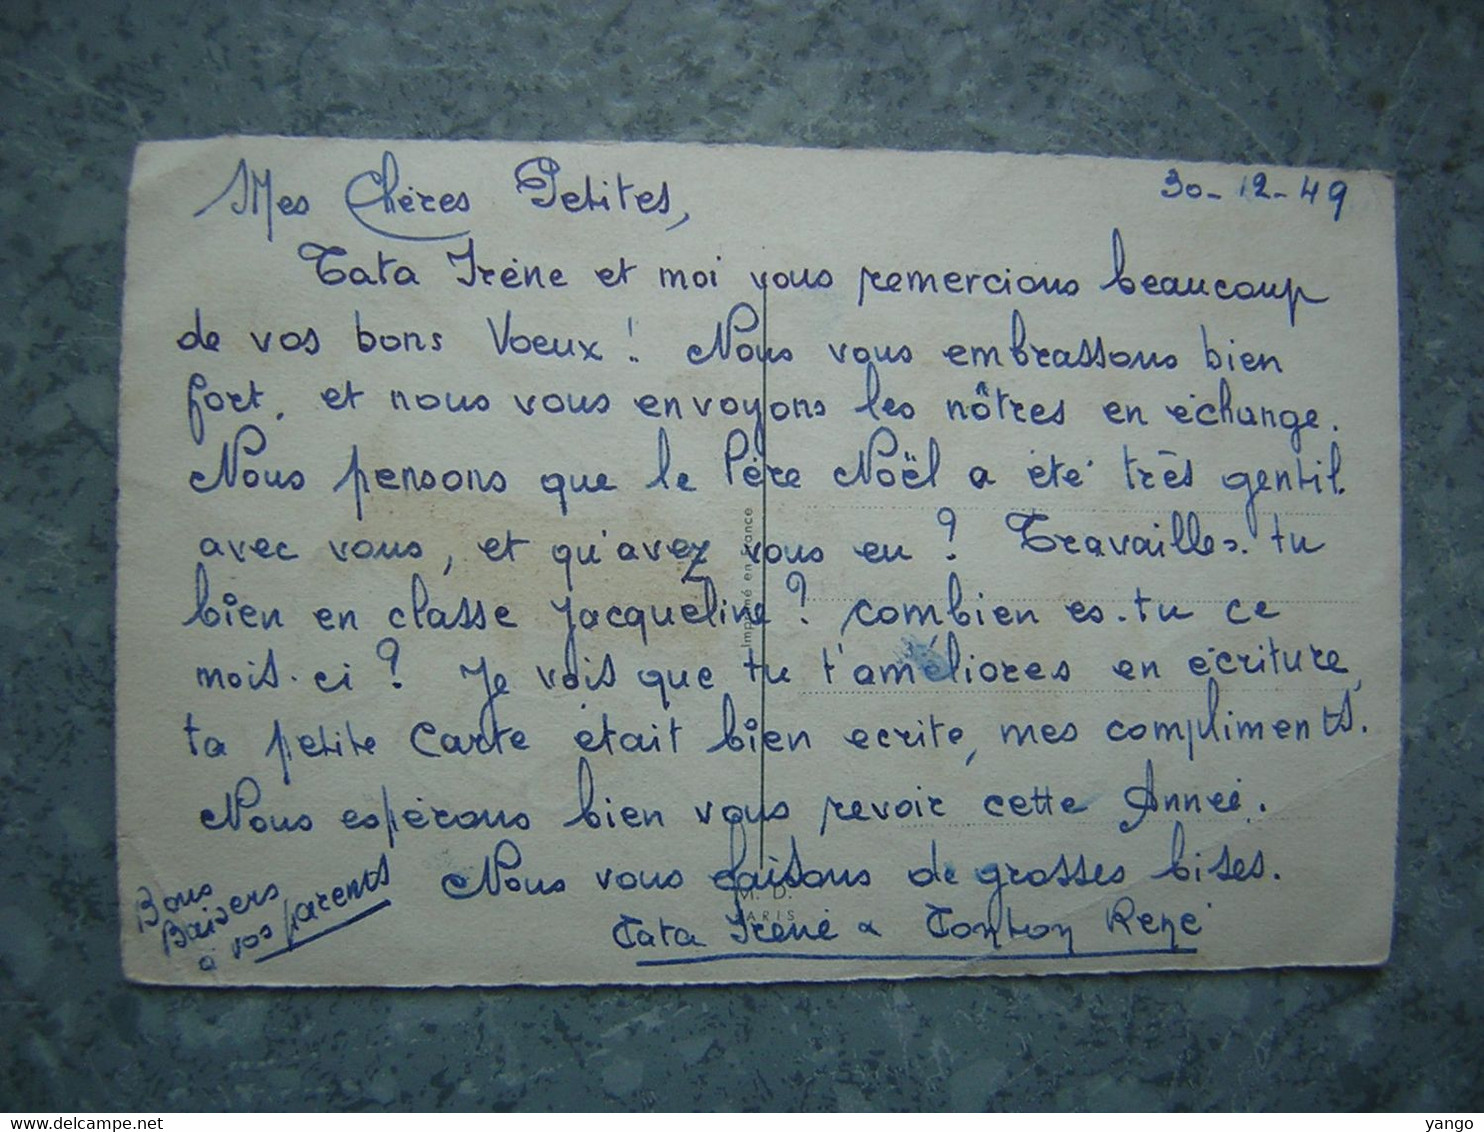 30-12-49
Mes Chères Petites,
Tata Irène et moi vous remercions beaucoup
de vos bons Voeux ! Nous vous embrassons bien
fort, et nous vous envoyons les nôtres en échange.
Nous pensons que le Père Noël a été très gentil
avec vous, et qu'avez vous eu ? Travailles-tu
bien en classe Jacqueline ? combien es-tu ce
mois-ci ? Je vois que tu t'améliores en écriture,
ta petite Carte était bien ecrite, mes compliments.
Nous espérons bien vous revoir cette Année.
Nous vous faisons de grosses bises.
Tata Irène & Tonton René
Bons
Baisers
à vos parents
Imprimé en France
M. D.
PARIS
delcampe.net
yango